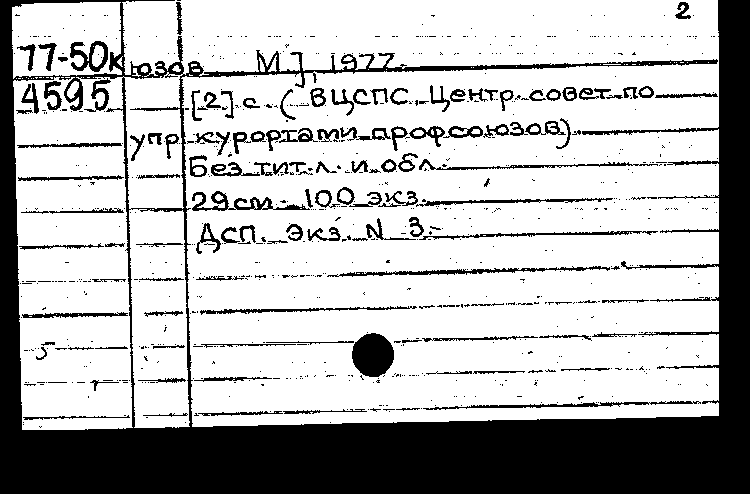 2
77-50к юзов М.], 1977.
4595 [2] с. (ВЦСПС. Центр. совет по
упр. курортами профсоюзов)
Без тит. л. и обл.
29 см. 100 экз.
ДСП. Экз. N 3.-
5